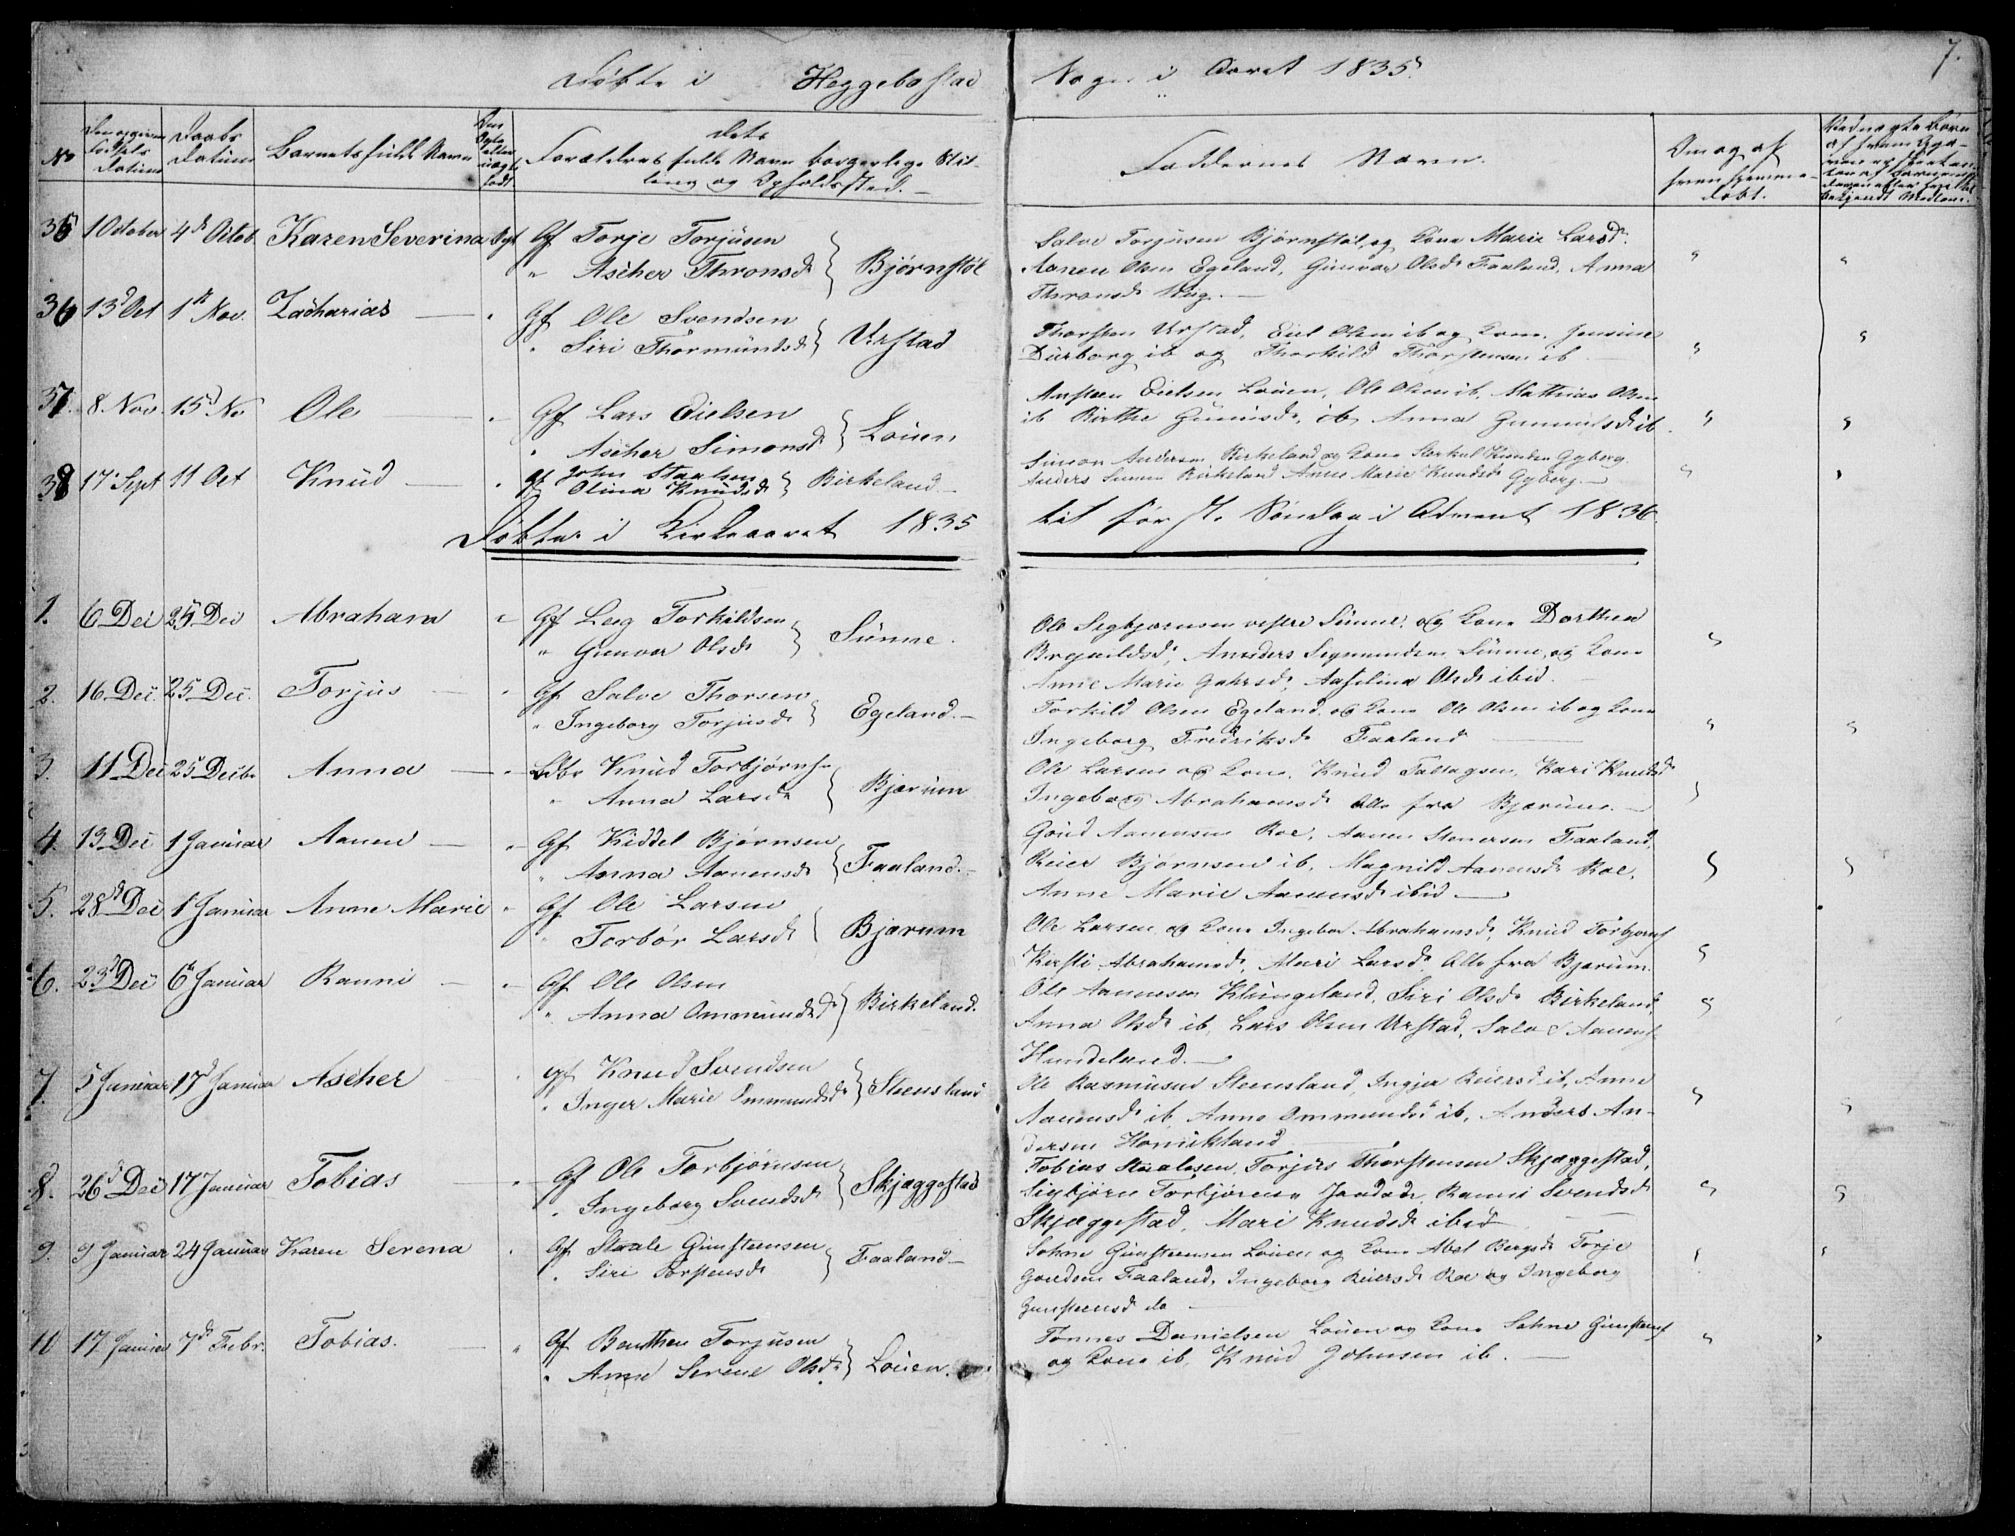 7.
Døbte i Heggebostad Sogn i Aaret 1835.
No
Daabs Datum
Barnets fulde Navn
Dets Forældres fulde Navn borgerlige Stilling og Opholdssted.
Faddernes Navn.
Om og af hvem hjemmedøbt.
35 1 October 4de Octob Karen Severina Ægt Gf Torje Torjusen
" Ascher Thronsd } Bjørnstøl
Salve Torjusen Bjørnstøl, og Kone Marie Larsd.
Aanen Olsen Egeland, Gunvor Olsd Faaland, Anna
Thronsd
36 13d Oct 1ste Nov. Zacharias — " Gf Ole Svendsen
" Siri Thormundsd } Urstad
Thorsten Urstad, Eiel Olsen ib og Kone, Jensine
ib og Thorkild Thorstensen ib
37. 8. Nov. 15d No Ole " Gf Lars Eielsen
" Ascher Simonsd } Løuen
Eielsen Løuen, Ole Olsen ib, Mathias Olsen
ib Birthe ib, Anna Gunnulsd ib.
38 17 Sept 11 Oct Knud — " Gf John Staalsen
Olina Knudsd } Birkeland —
Simon Andersen Birkeland og Kone Knudsen Gyberg.
Anders Birkeland Anne Marie Knudsd Gyberg —
Døbte i Kirkeaaret 1835 til første Søndag i Advent 1836.
1. 6 Dec 25 Dec Abraham " Gf Leig Torkildsen
" Gunvor Olsd } Sünne.
Ole Sigbjørnsen vestre Sünne, og Kone Dorthea
Anders Sigmundsen Sünne, og Kone
Anne Marie Olsd ibid.
2. 16 Dec. 25 Dec. Torjus — " Gf Salve Thorsen
" Ingeborg Torjusd } Egeland. —
Torkild Olsen Egeland, og Kone Ole Olsen ib og Kone
Ingeborg Fredriksd Faaland —
3. 11 Dec 25 Decbr Anna — " Knud Torbjørns.
" Anna Larsd } Bjærum
Ole Larsen og Kone, Knud Tallagsen, Kari Knudsd
Ingeborg Abrahamsd alle fra Bjærum. —
4. 13 Dec 1 Januar Aanen — " Gf Kiddel Bjørnsen
" Anna Aanensd } Faaland. —
Gaud Aanensen Roe, Aanen Stenersen Faaland,
Reier Bjørnsen ib, Magnild Aanensd Roe,
Anne Marie Aanensd ibid —
5. 28d Dec 1 Januar Anne Marie " Gf Ole Larsen
" Torbør Larsd } Bjærum
Ole Larsen og Kone Ingebor Abrahamsd, Knud Torbjørns
Kirsti Abrahamsd, Mari Larsd Alle fra Bjærum.
6. 23d Dec 6te Januar Ranni — " Gf Ole Olsen
" Anna Ommundsd } Birkeland.
Ole Aanensen Klungeland, Siri Olsd Birkeland,
Anna Olsd ib, Lars Olsen Urstad, Salve Aanens.
Hundeland. —
7. 5 Januar 17d Januar Ascher " Gf Knud Svendsen
" Inger Marie Ommundsd } Steensland
Ole Rasmusen Steensland, Ingjer Reiersd ib, Anne
Aanensd ib, Anne Ommundsd ib, Anders An-
dersen
8. 26d Dec 17 Januar Tobias " Gf Ole Torbjørnsen
" Ingeborg Svendsd } Skjæggestad
Tobias Staalesen, Torjus Thorstensen Skjæggestad,
Sigbjørn Torbjørnsen Ranni Svendsd
Skjæggestad, Mari Knudsd ibid —
9. 9 Januar 24 Januar Karen Serena " Gf Staale Gunstensen
" Siri Torstensd } Faaland —
Sohne Gunstensen Løuen og Kone Abel Bergsd Torje
Gaudsen Faaland, Ingeborg Reiersd Roe og Ingeborg
Gunstensd do —
10 17 Januar 7de Febr. Tobias. — " Gf Berthen Torjusen
" Anne Serene Olsd } Løuen.
Tønnes Danielsen Løuen og Kone Sohne Gunstens
og Kone ib, Knud Johnsen ib. —